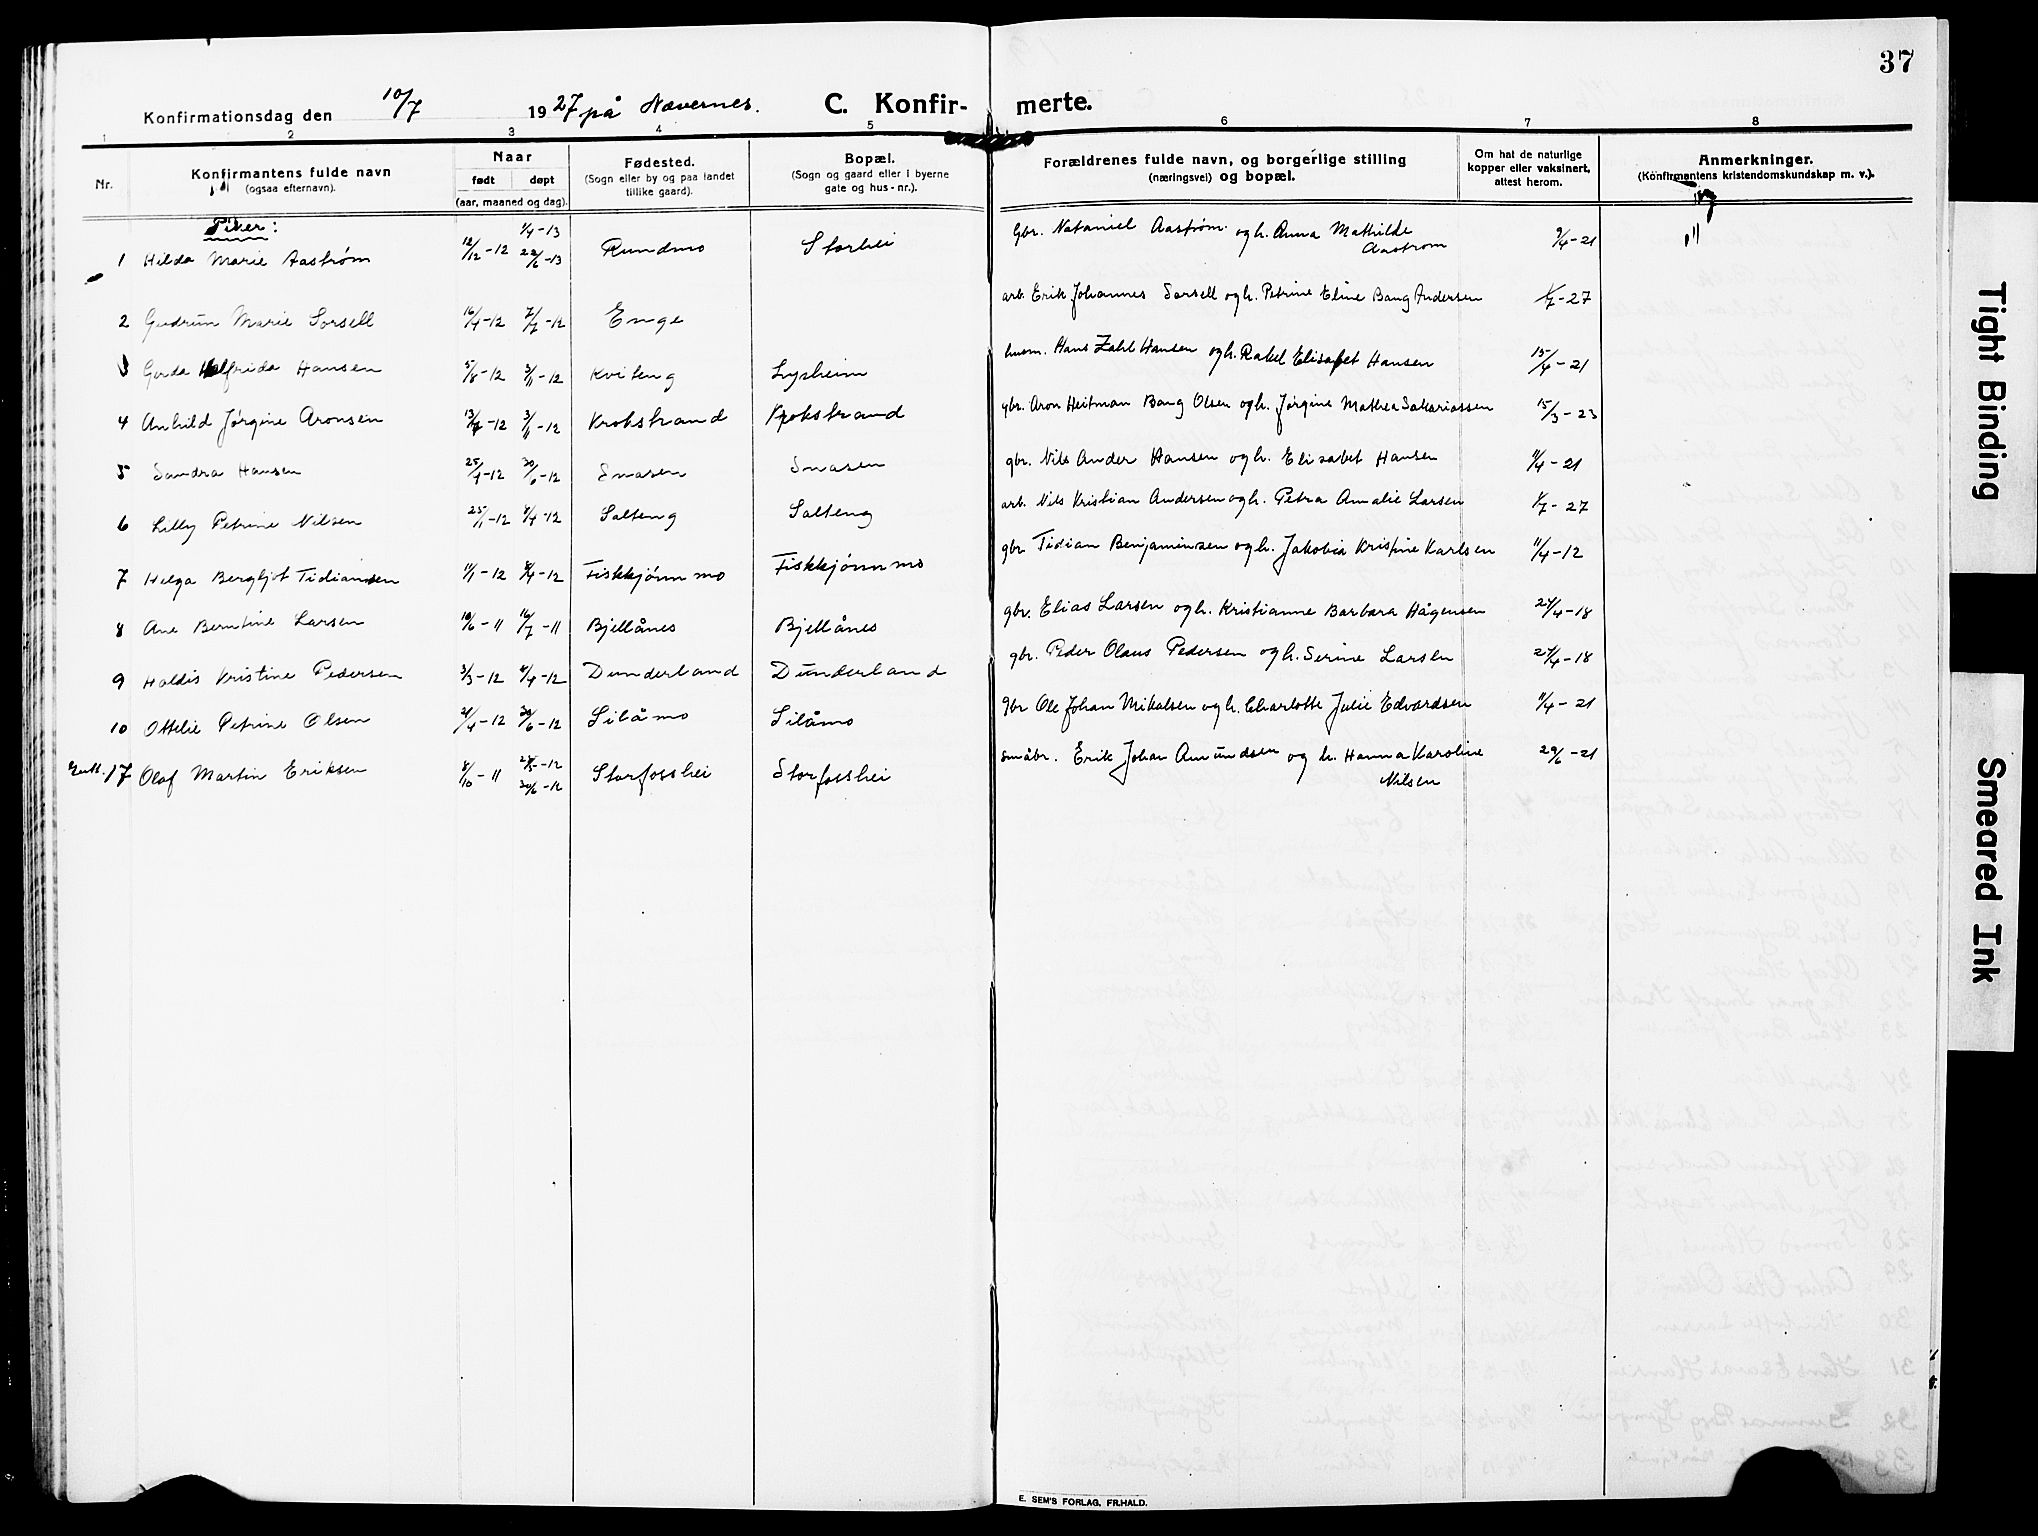 37
Konfirmationsdag den 10/7 1927 på Nævernes. C. Konfir- merte.
1 2 3 4 5 6 7 8
Nr.
Konfirmantens fulde navn
(ogsaa efternavn).
Naar
født døpt
(aar, maaned og dag).
Fødested.
(Sogn eller by og paa landet
tillike gaard).
Bopæl.
(Sogn og gaard eller i byerne
gate og hus-nr.).
Forældrenes fulde navn, og borgerlige stilling
(næringsvei) og bopæl.
Om hat de naturlige
kopper eller vaksinert,
attest herom.
Anmerkninger.
(Konfirmantens kristendomskundskap m. v.).
Piker:
1 Hilda Marie Aastrøm 12/12-12 1/4-13 22/6-13 Rundmo Storhei Gbr. Nataniel Aastrøm og h. Anna Mathilde Aastrøm 9/4-21
2 Gudrun Marie Sorsell 16/4-12 7/7-12 Enge arb. Erik Johannes Sorsell og h. Petrine Eline Bang Andersen 1/7-27
3 Gerda Halfrida Hansen 5/8-12 3/11-12 Kviteng Lysheim husm. Hans Zahl Hansen og h. Rakel Elisabet Hansen 15/4-21
4 Anhild Jørgine Aronsen 13/7-12 3/11-12 Krokstrand Krokstrand gbr. Aron Heitman Bang Olsen og h. Jørgine Mathea Sakariassen 15/3-23
5 Sandra Hansen 25/4-12 30/6-12 Smasen Smasen gbr. Nils Ander Hansen og h. Elisabet Hansen 11/4-21
6 Lilly Petrine Nilsen 25/1-12 8/4-12 Salteng Salteng arb. Nils Kristian Andersen og h. Petra Amalie Larsen 1/7-27
7 Helga Bergljot Tidiansen 11/1-12 8/4-12 Fiskkjønnmo Fiskkjønnmo gbr. Tidian Benjaminsen og h. Jakobia Kristine Karlsen 11/4-12
8 Ane Berntine Larsen 10/6-11 16/7-11 Bjellånes Bjellånes gbr. Elias Larsen og h. Kristianne Barbara Hågensen 24/4-18
9 Haldis Kristine Pedersen 3/3-12 8/4-12 Dunderland Dunderland gbr. Peder Olaus Pedersen og h. Serine Larsen 24/4-18
10 Ottelie Petrine Olsen 21/4-12 30/6-12 Silåmo Silåmo gbr Ole Johan Mikalsen og h. Charlotte Julie Edvardsen 11/4-21
Gutt. 17 Olaf Martin Eriksen 8/10-11 27/5-12 30/6-12 Storfosshei Storfosshei småbr. Erik Johan Amundsen og h. Hanna Karoline Nilsen 29/6-21
E. SEM'S FORLAG, FR.HALD.
Tight Binding
Smeared Ink